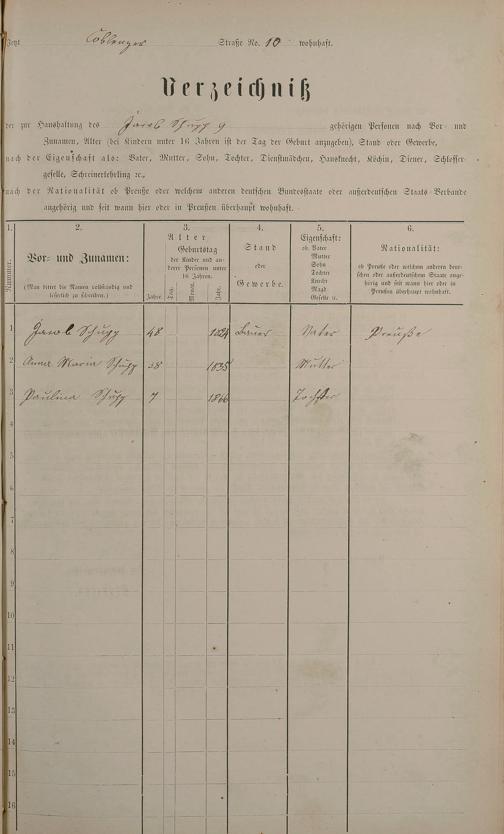 Jetzt Coblenzer Straße No. 10 wohnhaft.
Verzeichniß
der zur Haushaltung des Jacob Schupp 9 gehörigen Personen nach Vor- und
Zunamen, Alter (bei Kindern unter 16 Jahren ist der Tag der Geburt anzugeben), Stand oder Gewerbe,
nach der Eigenschaft als: Vater, Mutter, Sohn, Tochter, Dienstmädchen, Hausknecht, Köchin, Diener, Schlosser-
geselle, Schreinerlehrling ꝛc.,
nach der Nationalität ob Preuße oder welchem anderen deutschen Bundesstaate oder außerdeutschen Staats-Verbande
angehörig und seit wann hier oder in Preußen überhaupt wohnhaft.
1. 2. 3. 4. 5. 6.
Nummer.
Vor- und Zunamen:
(Man bittet die Namen vollständig und
leserlich zu schreiben.)
Alter
Geburtstag
der Kinder und an-
derer Personen unter
16 Jahren.
Jahre. Tag. Monat. Jahr.
Stand
oder
Gewerbe.
Eigenschaft:
ob Vater
Mutter
Sohn
Tochter
Knecht
Magd
Geselle ꝛc.
Nationalität:
ob Preuße oder welchem anderen deut-
schen oder außerdeutschen Staate ange-
hörig und seit wann hier oder in
Preußen überhaupt wohnhaft.
1 Jacob Schupp 48 1824 Bauer Vater Preuße
2 Anna Maria Schupp 38 1835 Mutter
3 Paulina Schupp 7 1866 Tochter
4
5
6
7
8
9
10
11
12
13
14
15
16